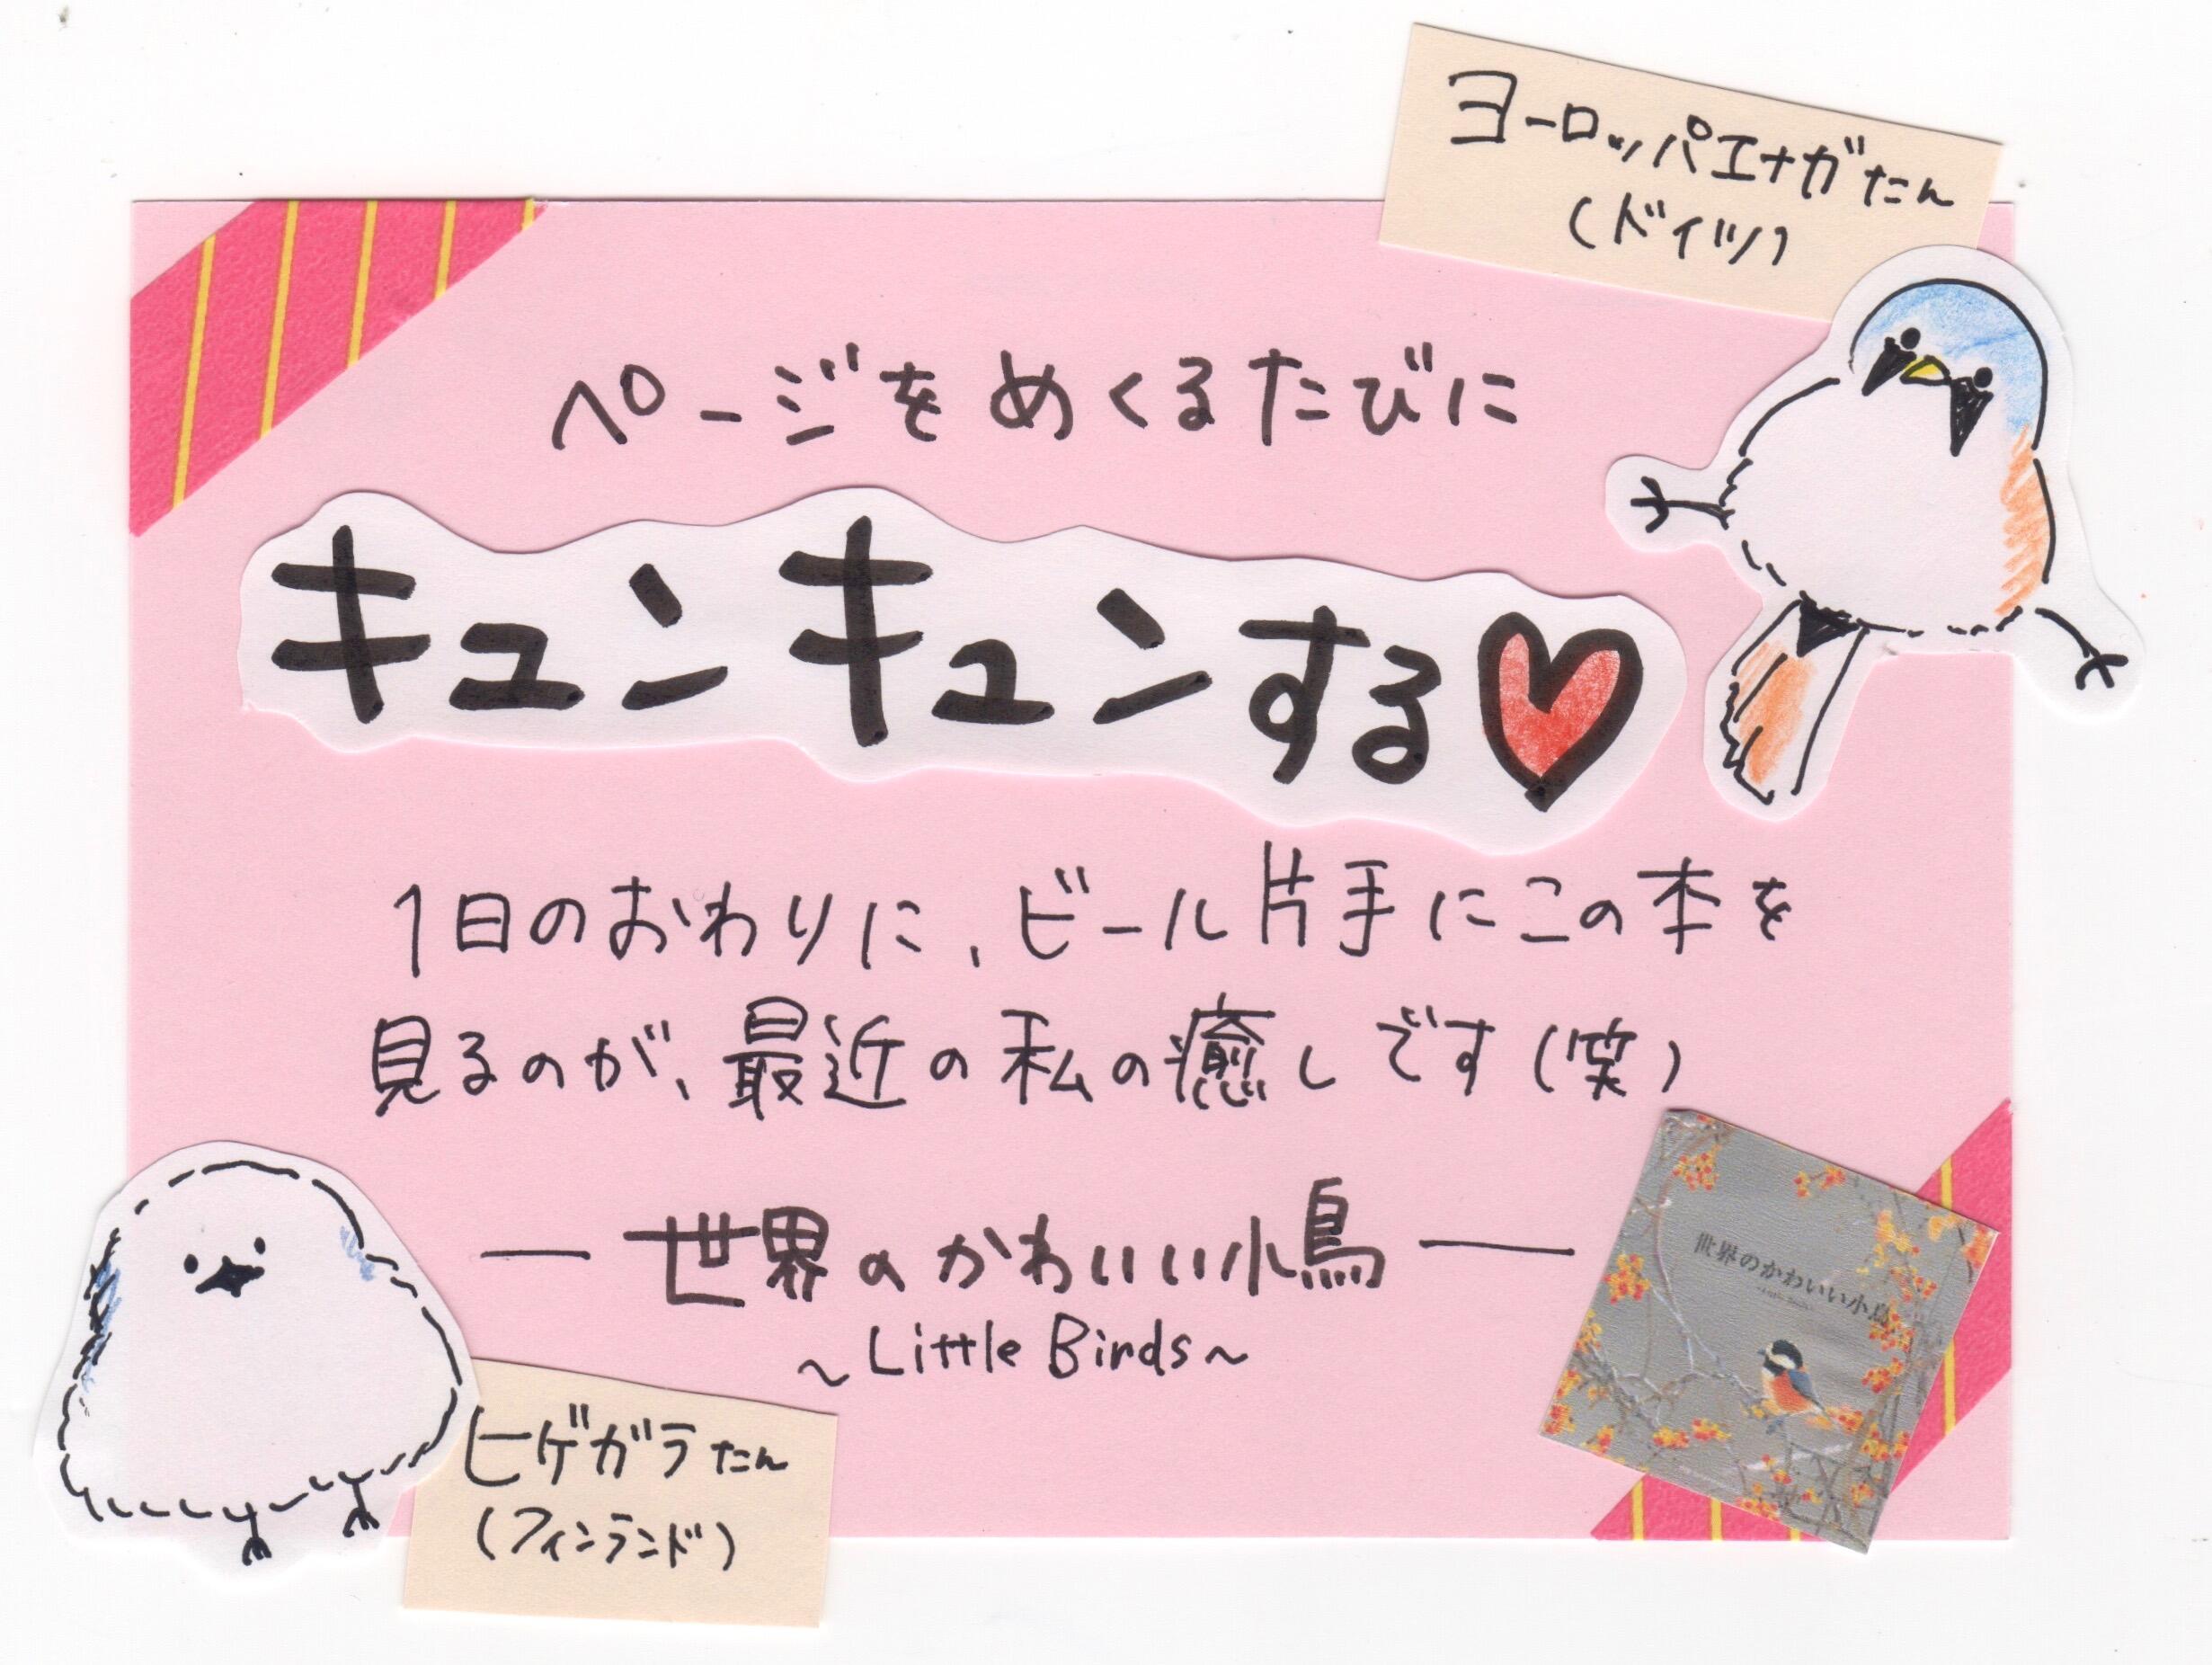 ヨーロッパエナガたん
(ドイツ)
ページをめくるたびに
キュンキュンする♥
1日のおわりに、ビール片手にこの本を
見るのが、最近の私の癒しです(笑)
世界のかわいい小鳥
~Little Birds~
世界のかわいい小鳥
ヒゲガラたん
(フィンランド)